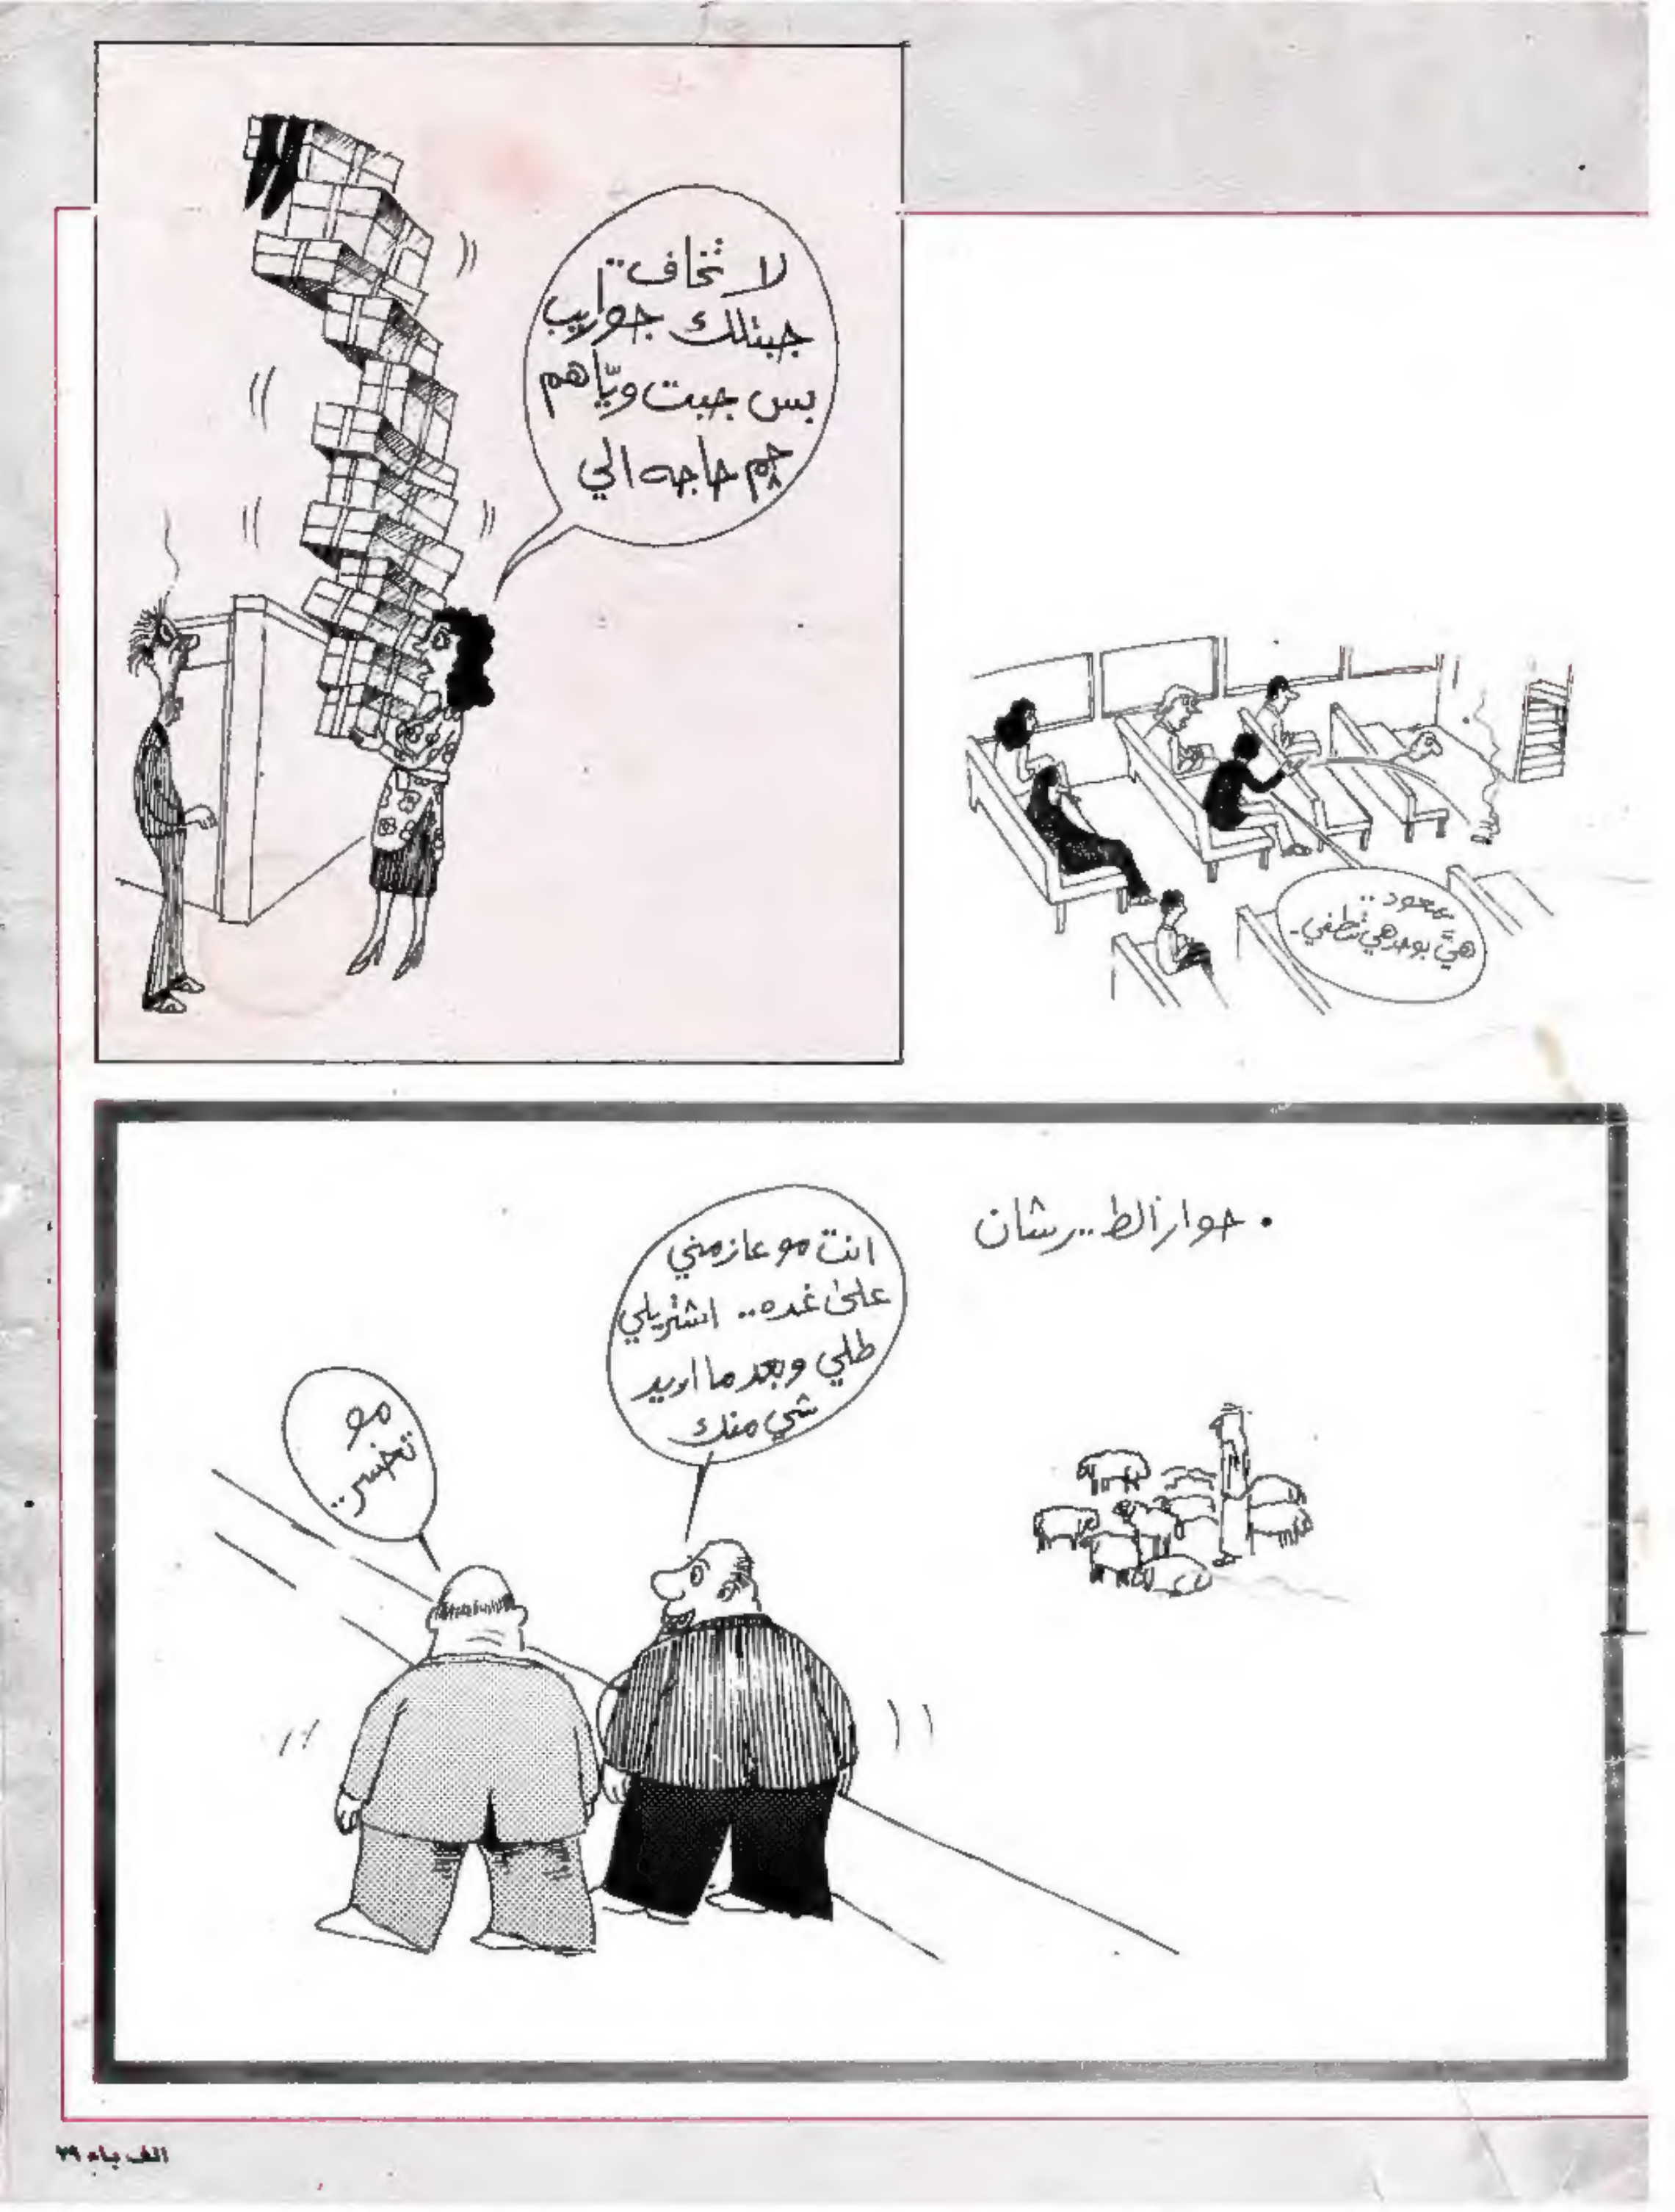 لا تخاف..
جبتلك جواريب
بس جبت ويّاهم
چم حاجه الي
يمعود..
هيّ بوحدهي تطفي.
• حوار الطـ..ـرشان
انت مو عازمني
على غده.. اشتريلي
طلي وبعد ما اريد
شي منك
مو
تخسر..
الف باء ٢٩